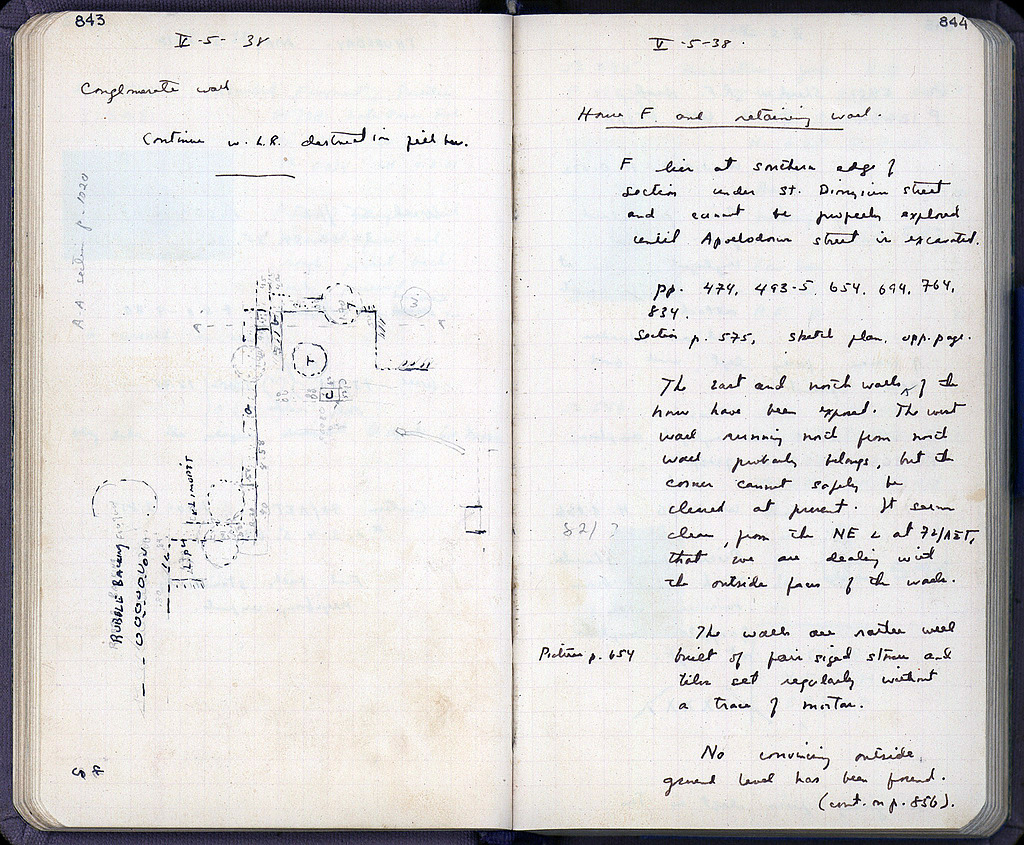 843
V-5-38
Conglomerate wall
Continue w. L.R. destruction fill here.
A-A section p. 1220
A
A
W
T
C
RUBBLE
844
V-5-38.
House F. and retaining wall.
F lies at southern edge of
section under St. Dionysius street
and cannot be properly explored
until Apollodorus street is excavated.
pp. 474, 493-5, 654, 694, 764,
834.
Section p. 575, sketch plan, opp. page.
The east and north walls of the
house have been exposed. The west
wall running north from north
wall probably belongs, but the
corner cannot safely be
cleared at present. It seems
82/?
clear, from the NE L at 72/
that we are dealing with
the outside faces of the walls.
The walls are rather well
Picture p. 654
built of fair sized stones and
tiles set regularly without
a trace of mortar.
No convincing outside
ground level has been found.
(cont. on p. 856).